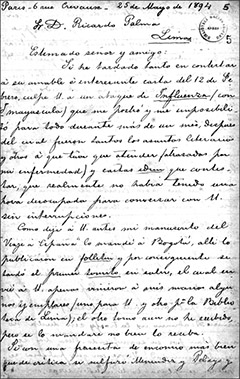 Paris - 6 rue Crevaux - 25 de Mayo de 1894
5
Sr D. Ricardo Palma
Lima
5
Estimado señor y amigo:
Si he tardado tanto en contestar
á su amable é interesante carta del 12 de Fe-
brero, culpe U. á un ataque de Influenza (con
I mayúscula) que me postró y me imposibili-
tó para todo durante más de un mes, después
del cual fueron tantos los asuntos literarios
y otros á que tuve que atender (atrasados por
mi enfermedad) y cartas que contes-
tar, que realmente no había tenido una
hora desocupada para conversar con U.
sin interrupciones.
Como dije á U. antes mi manuscrito del
Viaje á España lo mandé á Bogotá, allí lo
publicaron en folletín y por consiguiente se
tardó el primer tomito en salir, el cual en-
vié á U. apenas vinieron á mis manos algu-
nos ejemplares (uno para U. y otro pa la Biblio-
teca de Lima); el otro tomo aun no he recibido,
pero se lo mandaré no bien lo reciba.